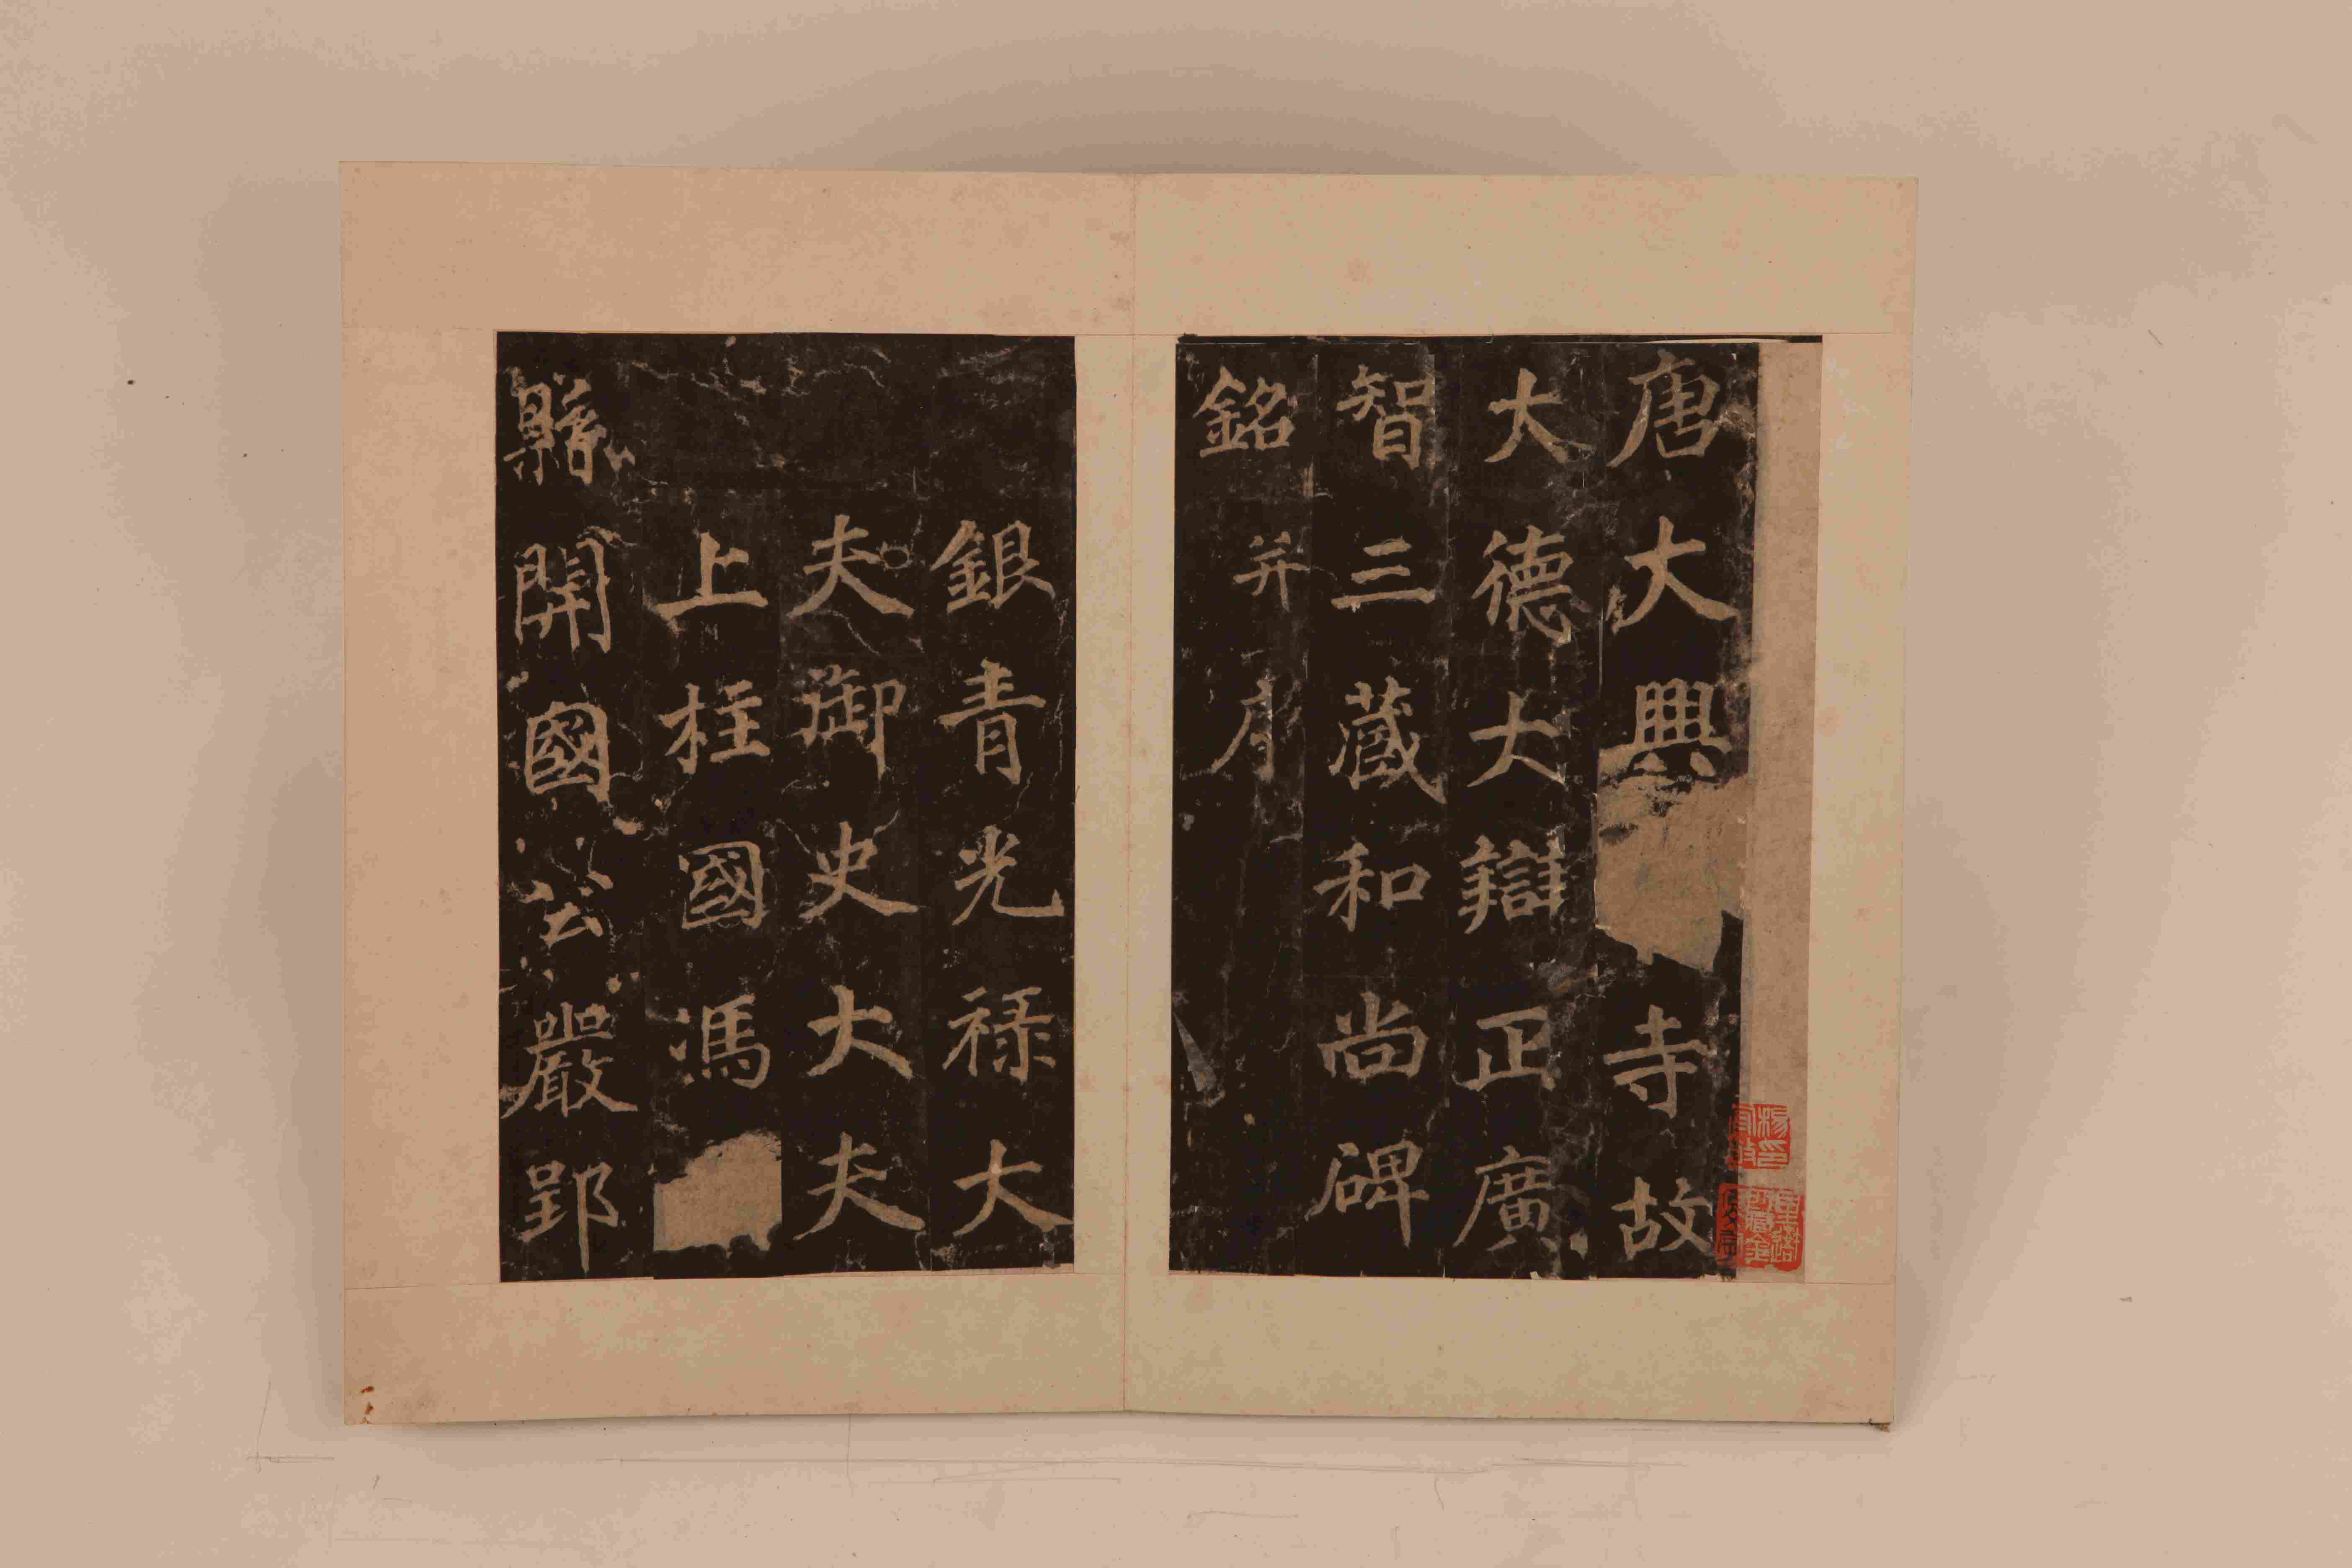 唐大興寺故
大德大辯正廣
智三藏和尚碑
銘并序
銀青光祿大
夫御史大夫
上柱國馮
縣開國公嚴郢